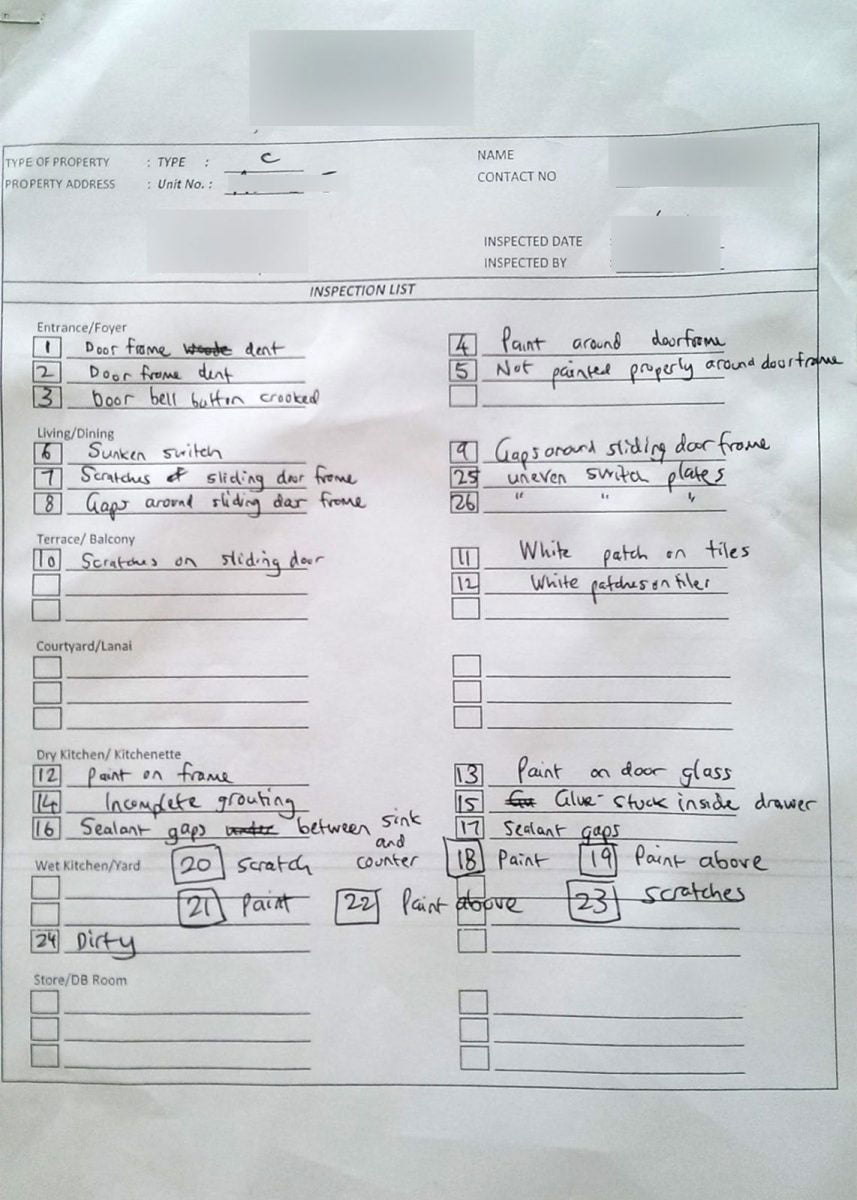 TYPE OF PROPERTY : TYPE : C
NAME
CONTACT NO
PROPERTY ADDRESS : Unit No. :
INSPECTED DATE :
INSPECTED BY :
INSPECTION LIST
Entrance/Foyer
1 Door frame dent
2 Door frame dent
3 Door bell button crooked
4 Paint around doorframe
5 Not painted properly around doorframe
Living/Dining
6 Sunken switch
7 Scratches of sliding door frame
8 Gaps around sliding door frame
9 Gaps around sliding door frame
25 uneven switch plates
26 " " "
Terrace/ Balcony
10 Scratches on sliding door
11 White patch on tiles
12 White patches on tiles
Courtyard/Lanai
Dry Kitchen/ Kitchenette
12 Paint on frame
14 Incomplete grouting
16 Sealant gaps between sink and counter
13 Paint on door glass
15 Glue stuck inside drawer
17 Sealant gaps
18 Paint 19 Paint above
Wet Kitchen/Yard
20 Scratch
21 Paint 22 Paint above 23 Scratches
24 Dirty
Store/DB Room